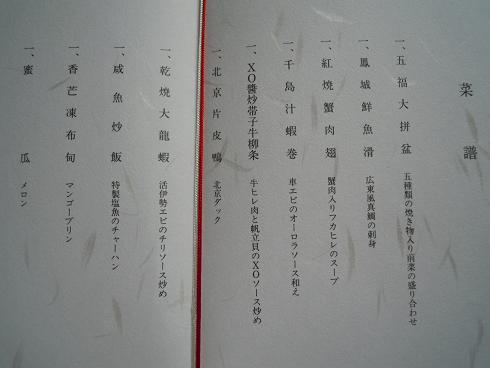 菜譜
一、五福大拼盆 五種類の焼き物入り前菜の盛り合わせ
一、鳳城鮮魚滑 広東風真鯛の刺身
一、紅焼蟹肉翅 蟹肉入りフカヒレのスープ
一、千島汁蝦巻 車エビのオーロラソース和え
一、XO醬炒帯子牛柳条 牛ヒレ肉と帆立貝のXOソース炒め
一、北京片皮鴨 北京ダック
一、乾焼大龍蝦 活伊勢エビのチリソース炒め
一、咸魚炒飯 特製塩魚のチャーハン
一、香芒凍布甸 マンゴープリン
一、蜜瓜 メロン